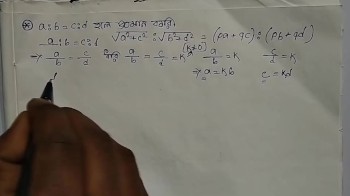 a:b = c:d হলে প্রমাণ করো
√a²+c² : √b²+d² = (pa+qc) : (pb+qd)
a:b = c:d
→ a/b = c/d a/b = c/d = K [K≠0] a/b = K c/d = K
→ a = Kb c = Kd